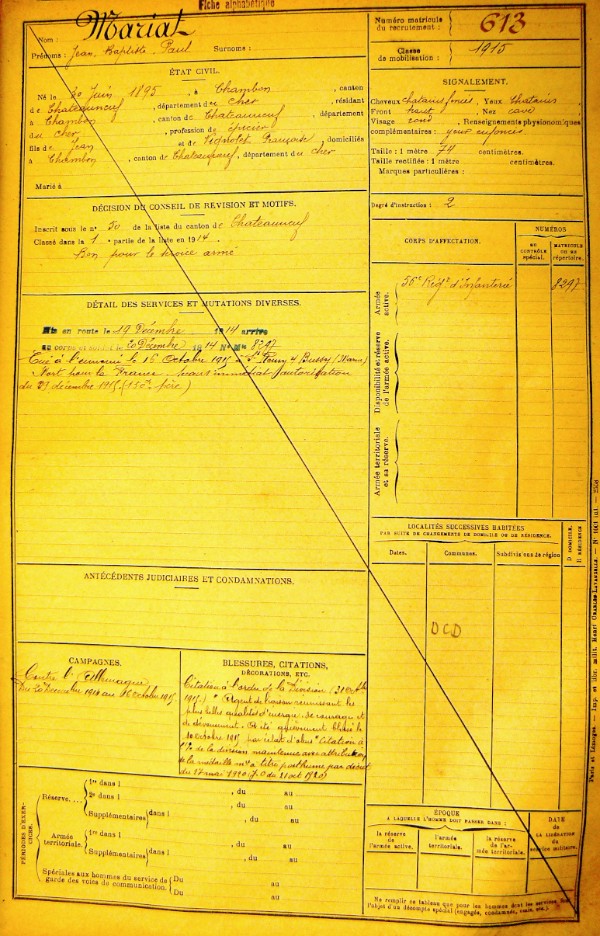 Fiche alphabétique
Nom : Mariat
Prénoms : Jean, Baptiste Paul Surnoms :
Numéro matricule du recrutement : 613
Classe de mobilisation : 1915
ÉTAT CIVIL.
Né le 20 Juin 1895, à Chambon, canton
de Chateauneuf, département du Cher, résidant
à Chambon, canton de Chateauneuf, département
du Cher, profession de épicier
fils de Jean et de Françoise, domiciliés
à Chambon, canton de Chateauneuf, département du Cher
Marié à
SIGNALEMENT.
Cheveux chatains foncés, Yeux Chatains
Front haut, Nez cave
Visage rond, Renseignements physionomiques
complémentaires : yeux enfoncés
Taille : 1 mètre 74 centimètres.
Taille rectifiée : 1 mètre centimètres.
Marques particulières :
Degré d'instruction : 2
DÉCISION DU CONSEIL DE RÉVISION ET MOTIFS.
Inscrit sous le n° 30 de la liste du canton de Chateauneuf
Classé dans la 1e partie de la liste en 1914.
Bon pour le service armé
CORPS D'AFFECTATION.
NUMÉROS
AU CONTRÔLE spécial.
MATRICULE OU AU répertoire.
Armée active.
56e Régt d'Infanterie
8297
Disponibilité et réserve de l'armée active.
Armée territoriale et sa réserve.
DÉTAIL DES SERVICES ET MUTATIONS DIVERSES.
Mis en route le 19 Décembre 1914 arrivé
au corps et soldat le 20 Décembre 1914 N° Mle 8297
Tué à l'ennemi le 16 Octobre 1915
Mort pour la France
du 27 décembre 1915
LOCALITÉS SUCCESSIVES HABITÉES
PAR SUITE DE CHANGEMENTS DE DOMICILE OU DE RÉSIDENCE.
Dates.
Communes.
Subdivisions de région
D DOMICILE.
R RÉSIDENCE
DCD
ANTÉCÉDENTS JUDICIAIRES ET CONDAMNATIONS.
CAMPAGNES.
Contre l'Allemagne
Du 20 Décembre 1914 au 16 Octobre 1915
BLESSURES, CITATIONS, DÉCORATIONS, ETC.
Citation à l'ordre de la Division
1915) " Sergent de liaison réunissant les
plus belles qualités d'énergie de courage et
de dévouement. A été grièvement blessé le
10 octobre 1915 par éclat d'obus " Citation à
de la division maintenue avec attribution
de la médaille mre à titre posthume par décret
PÉRIODES D'EXERCICES.
Réserve.
1re dans l , du au
2e dans l , du au
Supplémentaires dans l , du au
, du au
Armée territoriale.
1re dans l , du au
Supplémentaires dans l , du au
, du au
Spéciales aux hommes du service de garde des voies de communication. Du au
Du au
ÉPOQUE
A LAQUELLE L'HOMME DOIT PASSER DANS :
la réserve de l'armée active.
l'armée territoriale.
la réserve de l'armée territoriale.
DATE DE LA LIBÉRATION du service militaire.
Ne remplir ce tableau que pour les hommes dont les services font
l'objet d'un décompte spécial (engagés, condamnés, omis, etc.)
Paris et Limoges. — Imp. et libr. milit. Henri CHARLES-LAVAUZELLE.